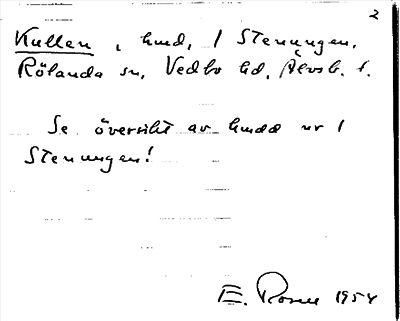 2
Kullen, hmd, / Stenungen,
Rölanda sn, Vedbo hd, Älvsb. l.
Se översikt av hmdd nr 1
Stenungen!
E. Rosen 1954